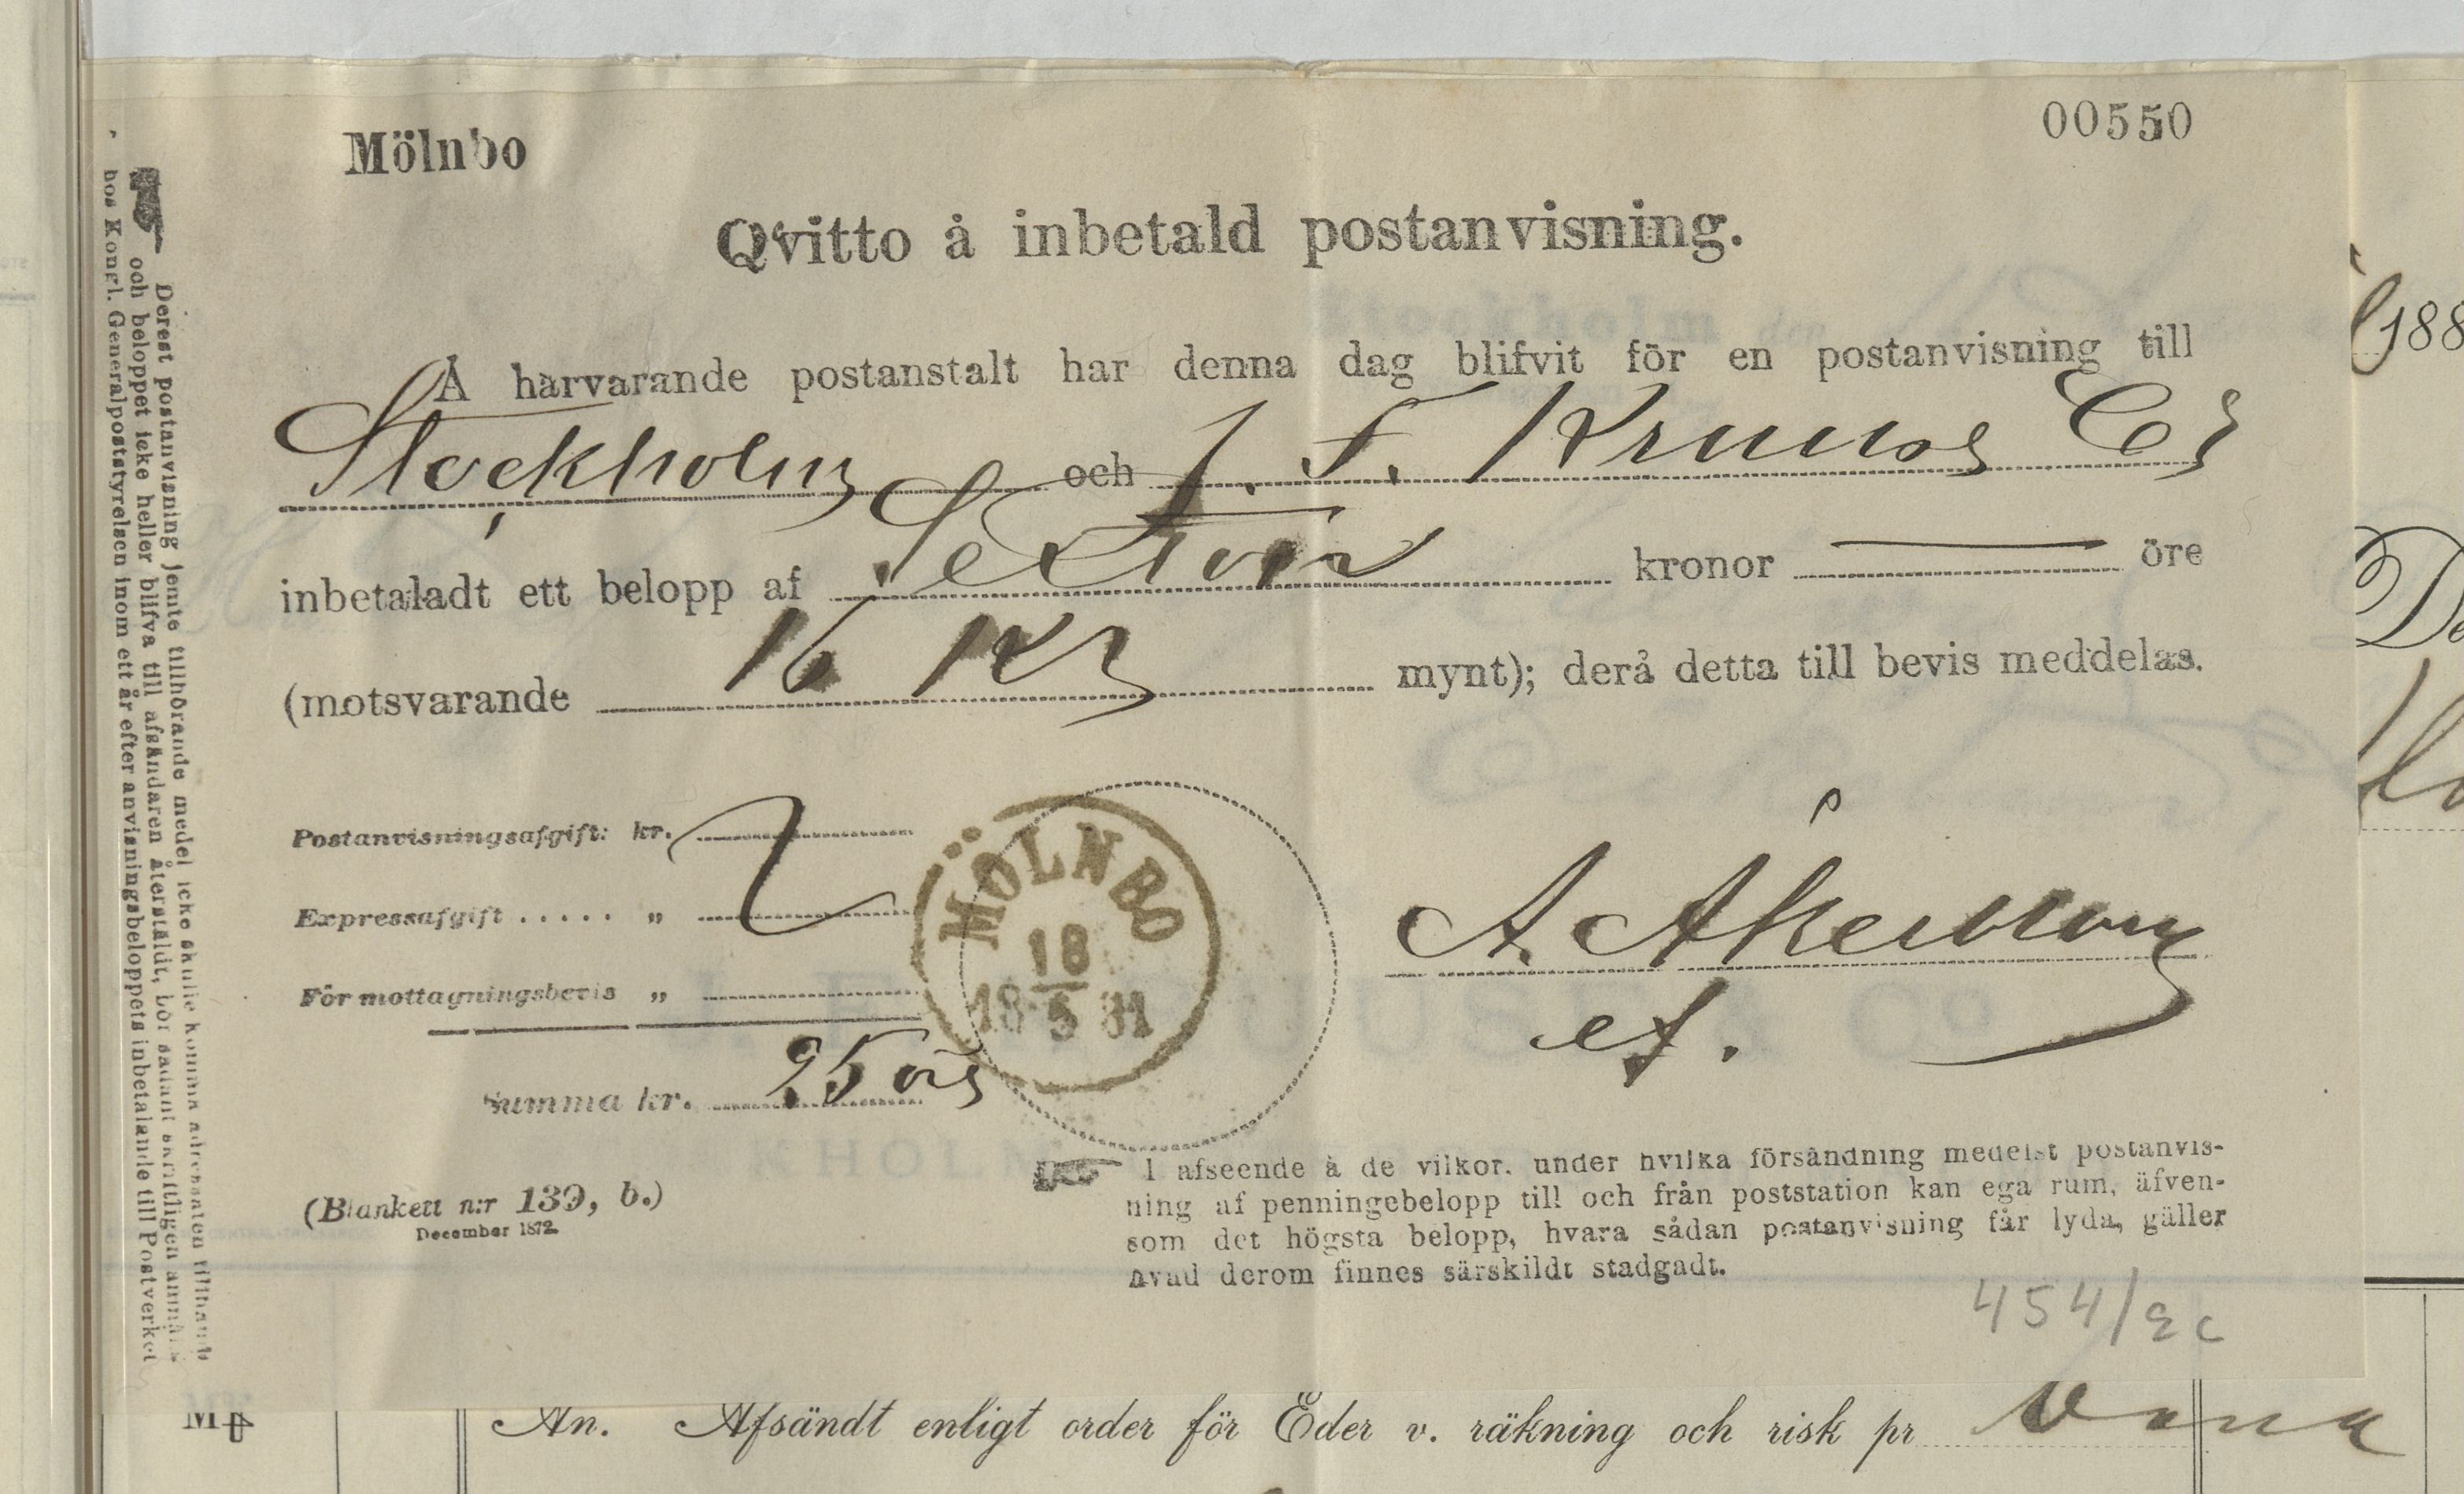 Mölnbo
00550
Qvitto å inbetald postanvisning.
Å härvarande postanstalt har denna dag blifvit för en postanvisning till
Stockholm och J. F. Kruuse Co
inbetaladt ett belopp af Sexton kronor — öre
(motsvarande 16 Kr mynt); derå detta till bevis meddelas.
Postanvisningsafgift: kr.
Expressafgift ..... „
För mottagningsbevis „
Summa kr. 25 öre
MÖLNBO
18
18 5 81
A. Åkerblom
ef.
(Blankett n:r 139, b.)
December 1872.
I afseende å de vilkor, under hvilka försändning medelst postanvis-
ning af penningebelopp till och från poststation kan ega rum, äfven-
som det högsta belopp, hvara sådan postanvisning får lyda, gäller
hvad derom finnes särskildt stadgadt.
454/
Derest postanvisning jemte tillhörande medel icke skulle komma adressaten tillhanda
och beloppet icke heller blifva till afsändaren återstäldt, bör sådant skriftligen anmälas
hos Kongl. Generalpoststyrelsen inom ett år efter anvisningsbeloppets inbetalande till Postverket
188
An. Afsändt enligt order för Eder v. räkning och risk pr